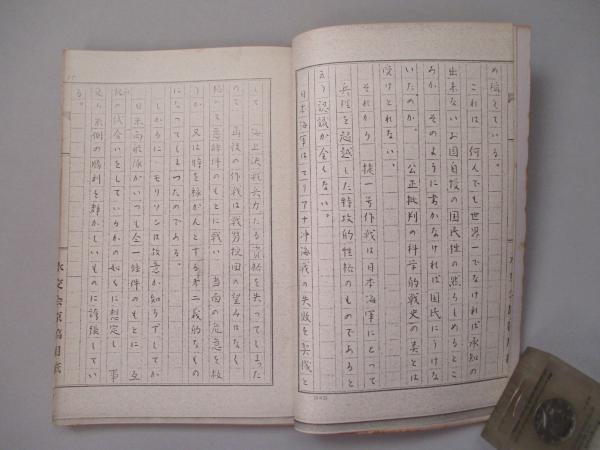 の強さている。
これは、何んでも世界一でなければ承知の
出来ないお国自慢の国民性の然らしめるとこ
ろか、そのように書かなければ国民にうけな
いためか。公正批判の科学的戦史の美とは
受けとれない。
それから、捷一号作戦は日本海軍にとって
兵理を超越した特攻的性格のものであると
云う認識が全くない。
日本海軍はマリアナ沖海戦の失敗を契機と
して、海上決戦兵力たる資格を失ってしまった
ので、再後の作戦は戦勢挽回の望みはなく、
極めて悪條件のもとに戦い、当面の危急を救
うか、又は時を稼がんとする第二義的なもの
になってしまったのである。
しかるに、モリソンは故意か知らずしてか
日米両艦隊がいつも全一條件のもとに、互
の試合いをしているかの如くに想定し、事
更ら米側の勝利を輝かしいものに誇張してい
る。
水交会原稿用紙